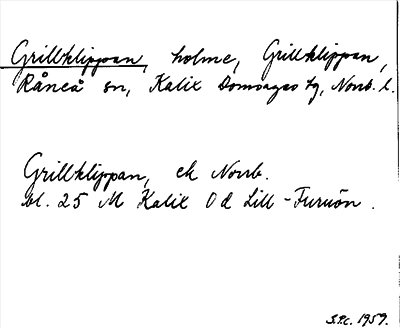 Grillklippan, holme, Grillklippan,
Råneå sn, Kalix Domsagas tg, Norrb. l.
Grillklippan, ek Norrb.
bl. 25 M Kalix 0 d Lill-Furuön.
S.P.C. 1959.